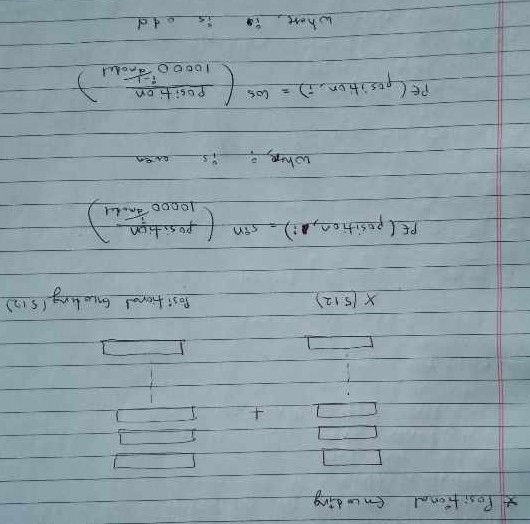 * Positional Encoding
+
X (512) Positional Encoding (512)
PE (position, i) = sin ( position / 10000^(i/dmodel) )
Where, i is even
PE (position, i) = cos ( position / 10000^(i-1/dmodel) )
Where, i is odd